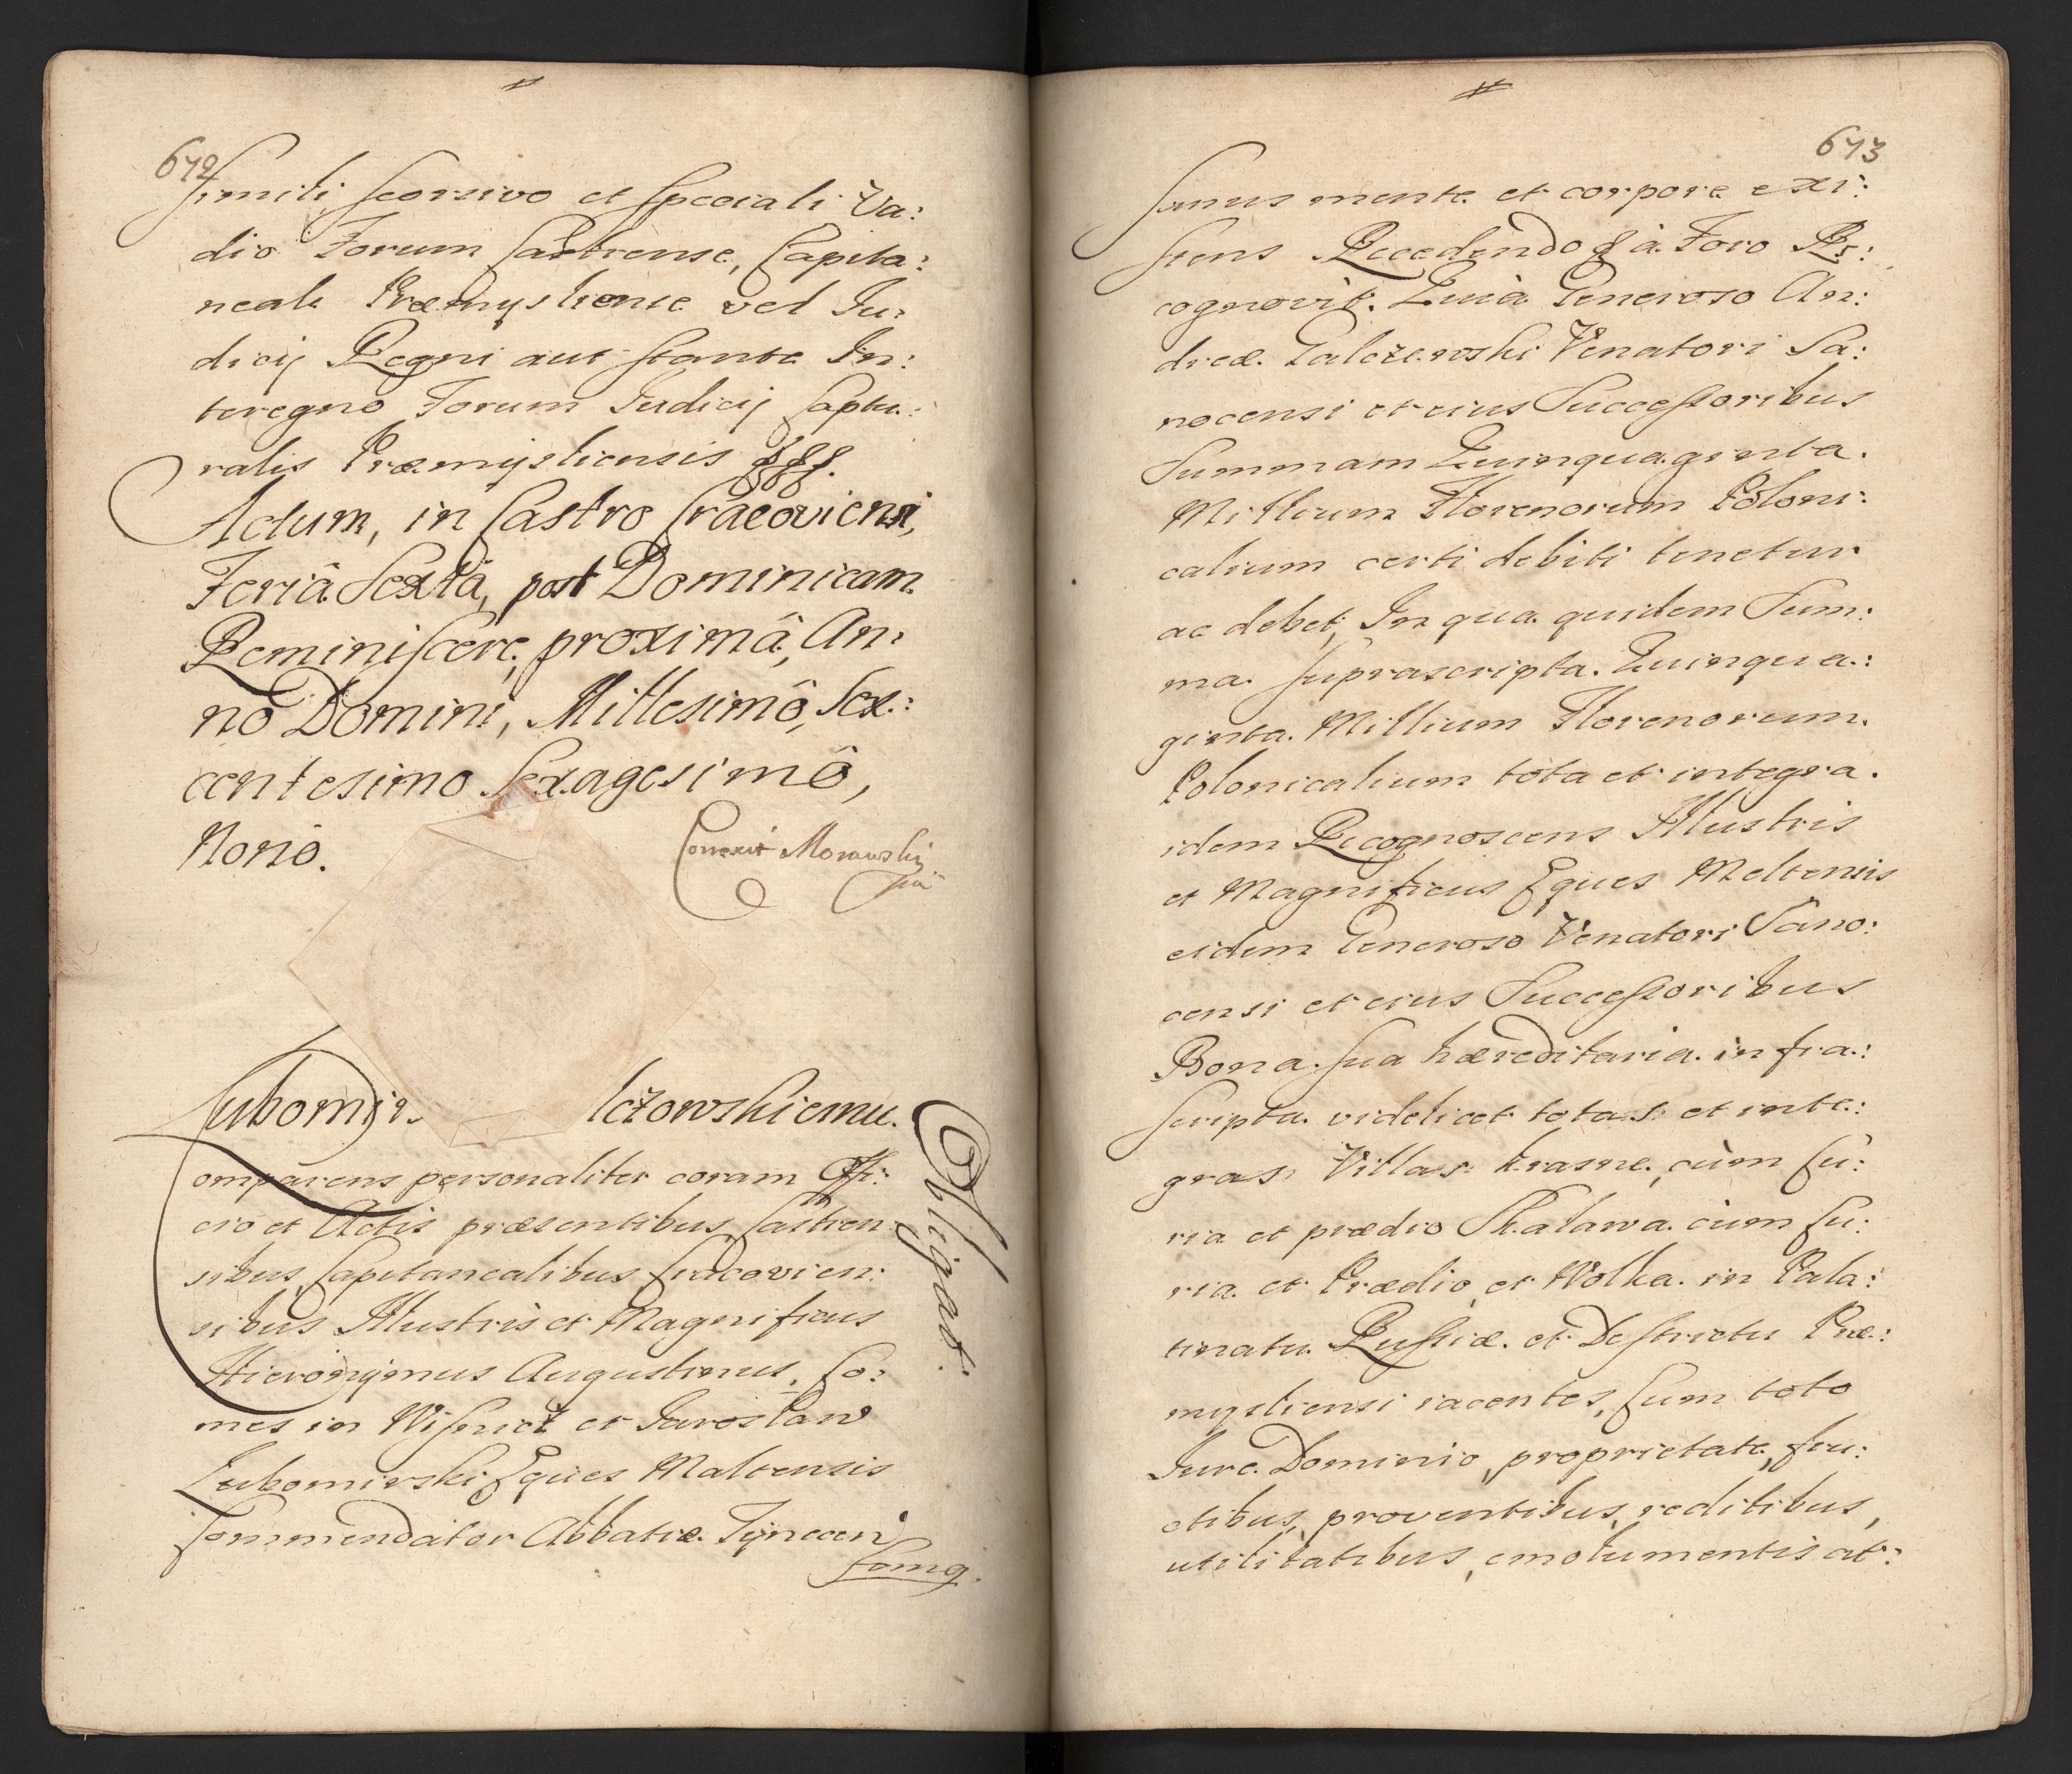 672
simili seorsivo et speciali Va:
dio Forum Castrense, Capita:
neale Præmysliense vel Iu:
dicij Regni aut stante In:
teregno Forum Iudicij Captu:
ralis Præmysliensis fff.
Actum, in Castro Cracoviensi,
Feriâ Sextâ, post Dominicam
Reminiscere, proximâ, An:
nô Domini, Millesimô, Sex:
centesimo Sexagesimô,
Nonô.
Correxit Morawski
Lubomir lczowskiemu.
Obligat.
omparens personaliter coram Offi:
cio et Actis præsentibus Castren:
sibus Capitanealibus Cracovien:
sibus Illustris et Magnificus
Hieronymus Augustinus, Co:
mes in Wisnicz et Iaroslaw
Lubomirski Eques Maltensis
Commendator Abbatiæ Tynecen
Comq.
673
sanus mente et corpore exi:
stens Recedendo à Foro Re:
cognovit. Quia Generoso An:
dreæ Galczowski Venatori Sa:
nocensi et eius Successoribus
Summam Quinquaginta
Millium Florenorum Poloni:
calium certi debiti tenetur
ac debet, In qua quidem Sum:
ma suprascripta Quinqua:
ginta Millium Florenorum
Polonicalium tota et integra
idem Recognoscens Illustris
et Magnificus Eques Meltensis
eidem Generoso Venatori Sano:
censi et eius Successoribus
Bona sua hæreditaria infra:
scripta videlicet totas et inte:
gras Villas Krasne, cùm Cu:
ria et prædio Skalawa cùm Cu:
ria et Prædio, et Wolka in Pala:
tinatu Russiæ et Destrictu Præ:
mysliensi iacentes, Cum toto
Iure Dominio, proprietate, fru:
ctibus, proventibus, reditibus,
utilitatibus, emolumentis at: